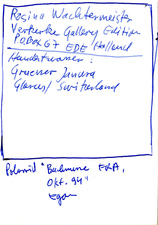 Rosina Wachtmeister
Verkerke Gallery Edition
P.O.Box 67 EDE Holland
Hundertwasser:
Gruener Janura
Glarus/ Switzerland
Polaroid "Buchmesse FRA,
Okt. 94"
Egon